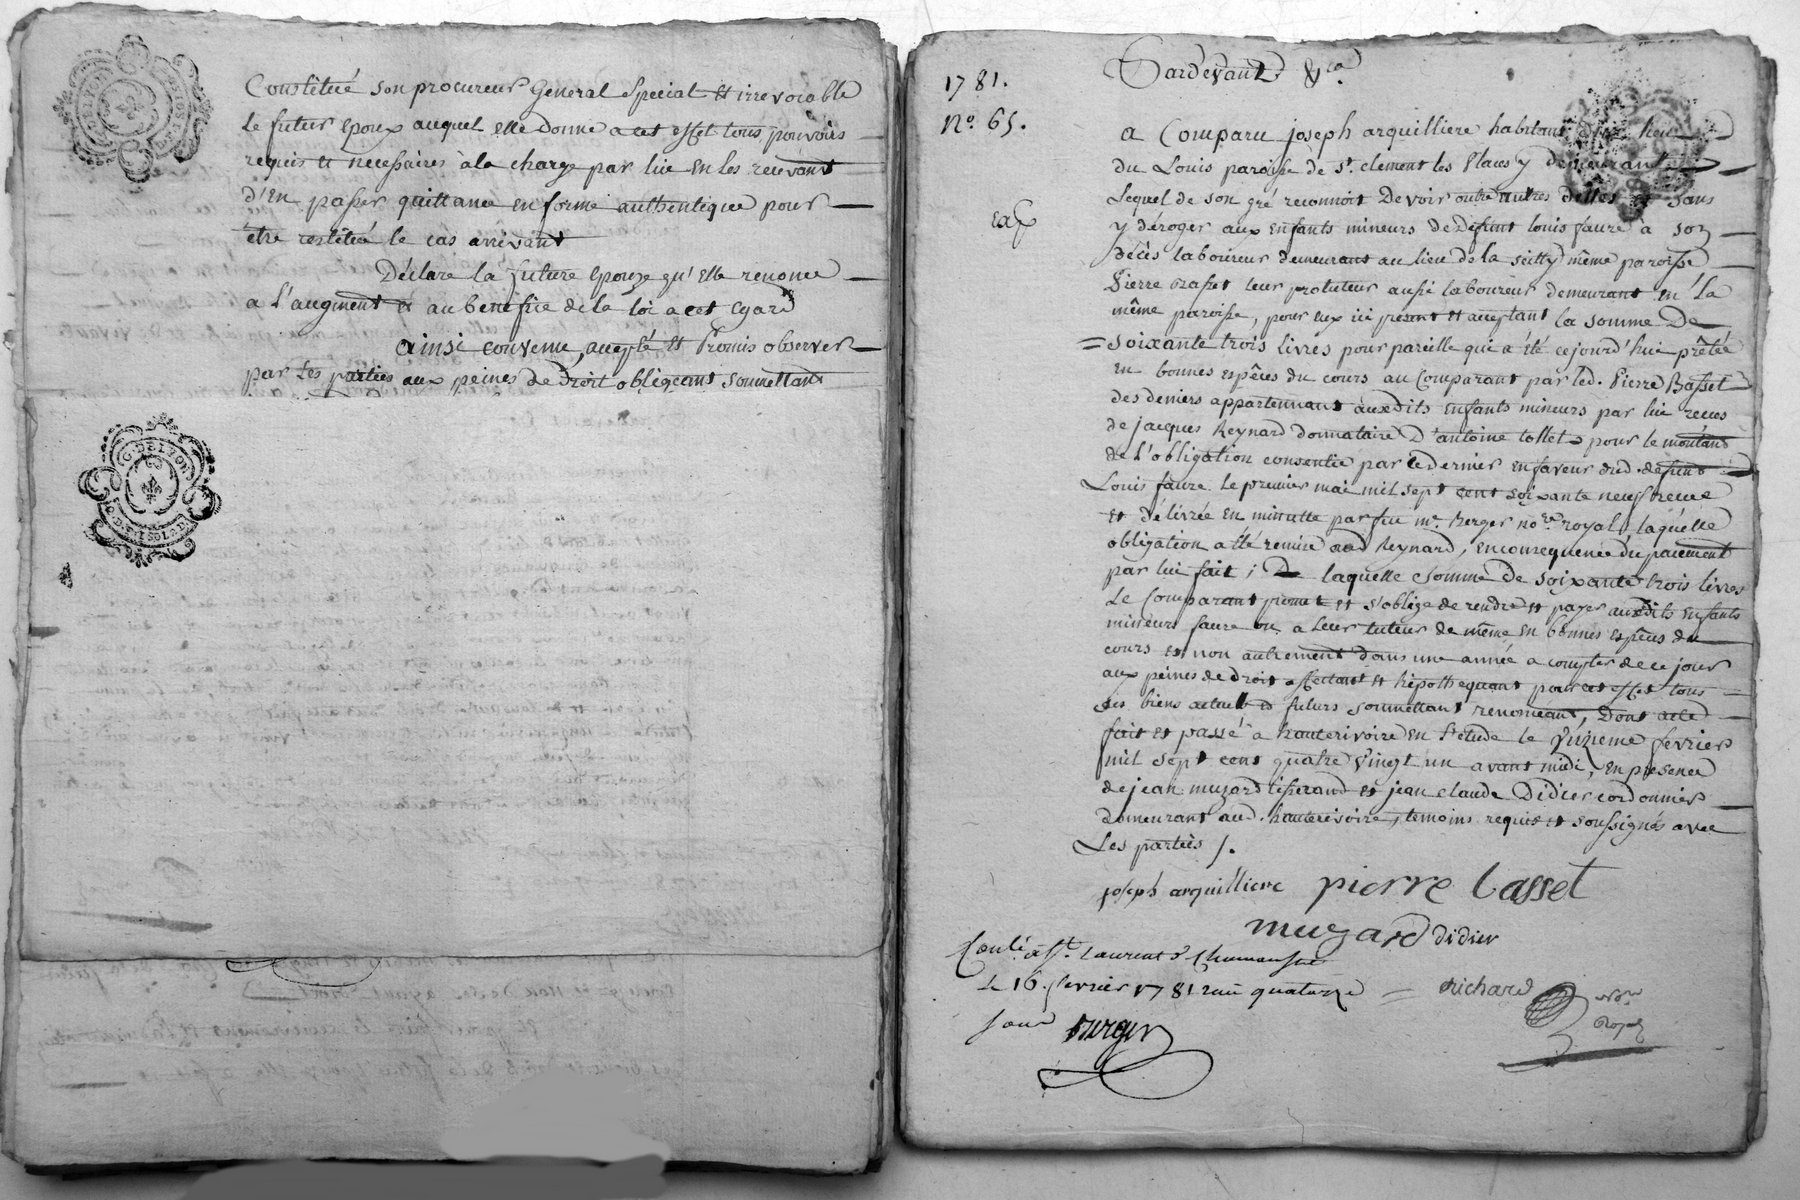 Constitué son procureur General Special et irrevocable
le futur Epoux auquel elle donne a cet effet tous pouvoirs
requis et necessaires à la charge par lui en les recevant
d'En passer quittance en forme authentique pour
être restitué le cas arrivant
Déclare la future Epouze qu'Elle renonce
a l'augment et au benefice de la loi a cet Egard
ainsi convenu, accepté et Promis observer
par les parties aux peines de Droit obligeant soumettant
G. DE LYON
1781.
N°. 65.
Pardevant &ca
a Comparu joseph arquilliere habitant du lieu
du Louis paroisse de St. clement les Places y demeurant
Lequel de son gré reconnoit Devoir outre autres dettes et sans
y déroger aux Enfants mineurs de Défunt louis faure a son
Décès laboureur demeurant au lieu de la même paroisse
Pierre Basset leur protuteur aussi laboureur demeurant En la
même paroisse, pour eux ici présent et acceptant la somme De
= soixante trois livres pour pareille qui a été cejourd'hui prêtée
en bonnes espêces du cours au Comparant par led. Pierre Basset
des deniers appartennants auxdits Enfants mineurs par lui reçus
de jacques Reynard donnataire D'antoine pour le montant
de l'obligation consentie par ce dernier En faveur dud. defunt
Louis faure le premier mai mil sept cent soixante neuf recue
et délivrée en minutte par feu me. Berger nore royal, laquelle
obligation a été remise aud Reynard, en consequence du paiement
par lui fait; De laquelle somme de soixante trois livres
le Comparant promet et s'oblige de rendre et payer auxdits Enfants
mineurs faure ou a leur tuteur de même en bonnes espêces du
cours et non autrement dans une année a compter de ce jour
aux peines de Droit affectant et hipothequant pour cet effet tous
ses biens actuels et futurs soumettant renonceant, Dont acte
fait et passé à hauterivoire En l'étude le fevrier
mil sept cent quatre vingt un avant midi, En presence
de jean muzard tisserand et jean claude Didier cordonnier
demeurant aud. hauterivoire, temoins requis et soussignés avec
Les parties /.
joseph arquilliere pierre basset
muzard didier
Conlé à St. Laurent
Le 16. fevrier 1781 reçu quatorze =
sous Berger
richard
Nore
Royal